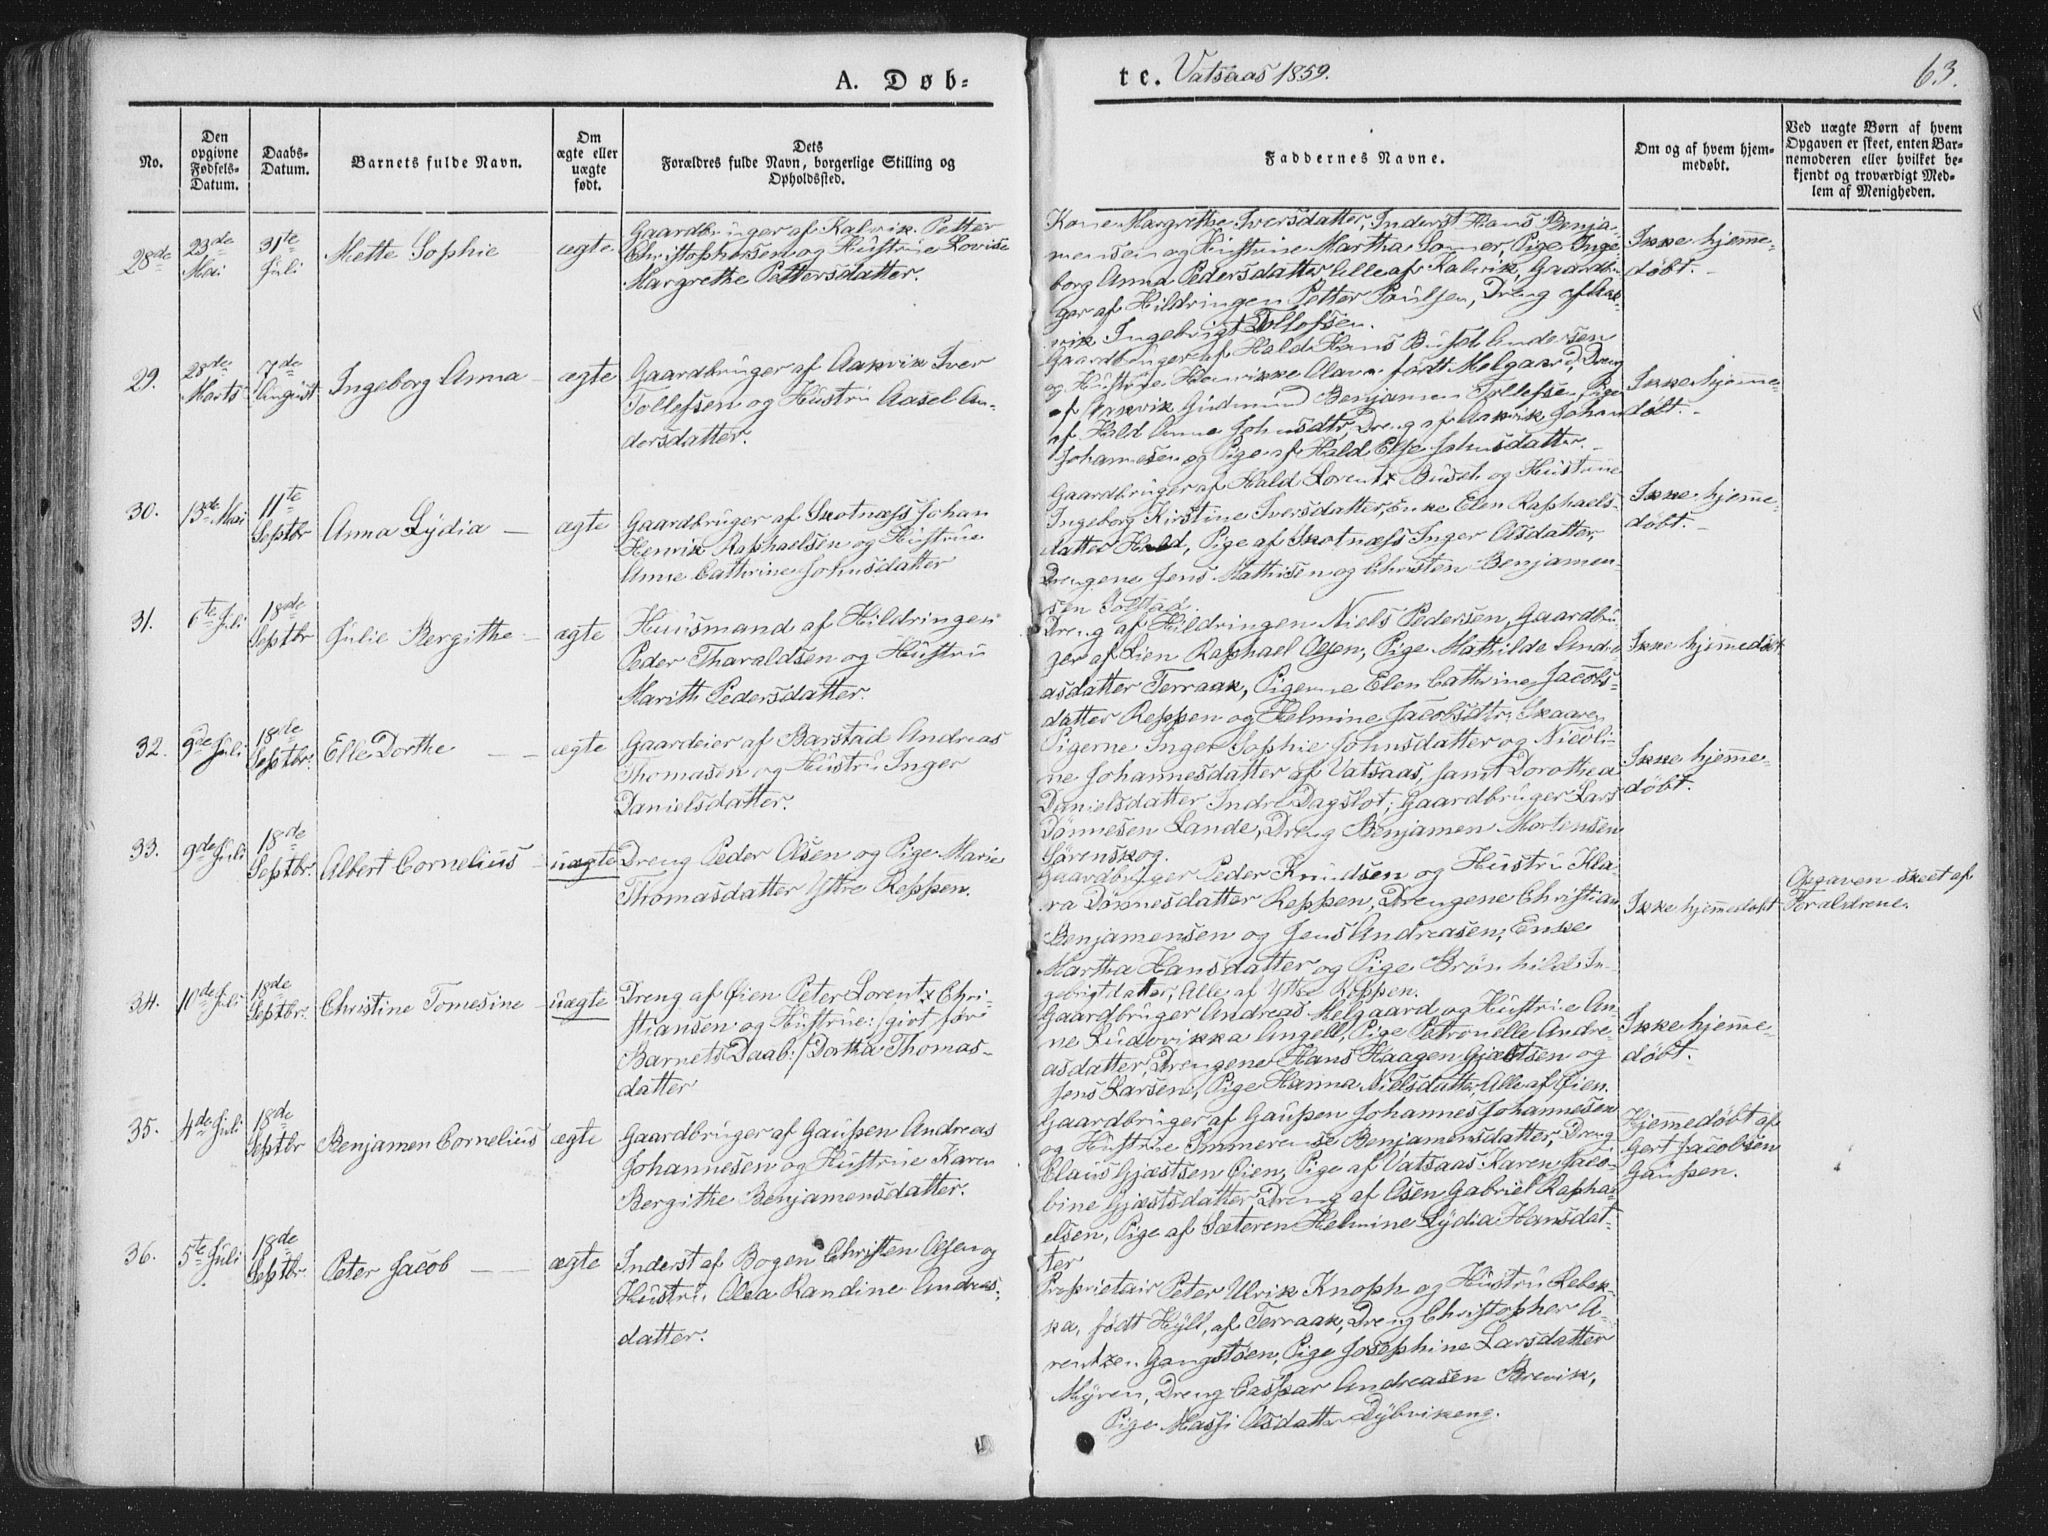 A. Døb-
te. Vatsaas 1859.
63.
No.
Den
opgivne
Fødsels-
Datum.
Daabs-
Datum.
Barnets fulde Navn.
Om
ægte eller
uægte
født.
Dets
Forældres fulde Navn, borgerlige Stilling og
Opholdssted.
Faddernes Navne.
Om og af hvem hjem-
medøbt.
Ved uægte Børn af hvem
Opgaven er skeet, enten Bar-
nemoderen eller hvilket be-
kjendt og troværdigt Med-
lem af Menigheden.
28de
23de
Mai
31te
Juli
Mette Sophie
ægte
Gaardbruger af Kalvik Petter
Christophersen og Hustrue Lovise
Margrethe Pettersdatter.
Kone Margrethe Iversdatter, Inderst Hans Benja-
mensen og Hustrue Martha Somer, Pige Inge-
borg Anna Pedersdatter, alle af Kalvik, Gaardbru
ger af Hildringen Petter Poulsen, Dreng af Aak-
vik Ingebrigt Tollefsen.
Ikke hjemme-
døbt.
29.
28de
Marts
7de
August
Ingeborg Anna
ægte
Gaardbruger af Aakvik Iver
Tollefsen og Hustru Aasel An-
dersdatter.
Gaardbruger af Hald Hans Busch Andersen
og Hustrue Henrikke Olava født Melgaard, Dreng
af Aakvik Gudmund Benjamen Tollefsen, Pige
af Hald Anne Johnsdtr, Dreng af Aakvik Johan
Johannesen og Pige af Hald Else Johnsdatter.
Ikke hjemme-
døbt.
30.
13de Mai
11te
Septbr
Anna Lydia
ægte
Gaardbruger af Skotnæss Johan
Henrik Raphaelsen og Hustrue
Anne Cathrine Johnsdatter
Gaardbruger af Hald Lorentz Busch og Hustrue
Ingeborg Kirstine Iversdatter, Enke Elen Raphaels-
datter Hald, Pige af Skotnæss Inger Olsdatter,
Drengene Jens Mathisen og Christen Benjamen-
sen Solstad.
Ikke hjemme-
døbt.
31.
6te Juli
18de
Septbr
Julie Bergithe
ægte
Huusmand af Hildringen
Peder Tharaldsen og Hustru
Marith Pedersdatter.
Dreng af Hildringen Niels Pedersen, Gaardbru
ger af Lien Raphael Olsen, Pige Mathilde Andre
asdatter Terraak, Pigerne Elen Cathrine Jacobs-
datter Reppen og Helmine Jacobsdtr. Skaaren
Ikke hjemmedøbt
32.
9de Juli
18de
Septbr.
Elle Dorthe
ægte
Gaardeier af Barstad Andreas
Thomasen og Hustru Inger
Danielsdatter.
Pigerne Inger Sophie Johnsdatter og Nicoli-
ne Johannesdatter af Vatsaas, samt Dorothea
Danielsdatter Indre Dagslot, Gaardbruger Lars
Dønnesen Lande, Dreng Benjamen Mortensen
Sørenskog.
Ikke hjemme-
døbt.
33.
9de Juli
18de
Septbr.
Albert Cornelius
uægte
Dreng Peder Olsen og Pige Marie
Thomasdatter Yttre Reppen.
Gaardbruger Peder Knudsen og Hustru Kla-
ra Dønnesdatter Reppen, Drengene Christian
Benjamensen og Jens Andreasen, Enke
Martha Hansdatter og Pige Brønhild In-
gebrigtdatter, Alle af Yttre Reppen.
Ikke hjemmedøpt
Opgaven skeet af
Forældrene.
34.
10de Juli
18de
Septbr.
Christine Tomesine
uægte
Dreng af Øien Peter Lorentz Chri-
stiansen og Hustrue :/givt før
Barnets Daab:/ Dorthea Thomas-
datter
Gaardbruger Andreas Melgaard og Hustrue An-
ne Ludovikka Angell, Pige Petronelle Andre-
asdatter, Drengene Hans Haagen Gjæstsen og
Jens Larsen, Pige Hanna Nielsdatter, Alle af Øien.
Ikke hjemme-
døbt.
35.
4de Juli
18de
Septbr
Benjamen Cornelius
ægte
Gaardbruger af Gaupen Andreas
Johannesen og Hustrue Karen
Bergithe Benjamensdatter.
Gaardbruger af Gaupen Johannes Johannesen
og Hustrue Immerense Benjamensdatter, Dreng
Claus Gjæstsen Øien, Pige af Vatsaas Karen Jaco-
bine Gjæstsdatter, Dreng af Osen Gabriel Rapha-
elsen, Pige af Sæteren Helmine Lydia Hansdat-
ter
Hjemmedøbt af
Gert Jacobsen
Gaupen.
36.
5te Juli
18de
Septbr.
Peter Jacob
ægte
Inderst af Bogen Christen Olsen og
Hustru Olea Randine Andreas-
datter.
Proprietair Peter Ulrik Knoph og Hustru Rebek-
ka, født Hyll, af Terraak, Dreng Christopher A-
rentzen Gangstøen, Pige Josephine Larsdatter
Myren, Dreng Caspar Andreasen Brevik,
Pige Massi Olsdatter Dybvikeng.